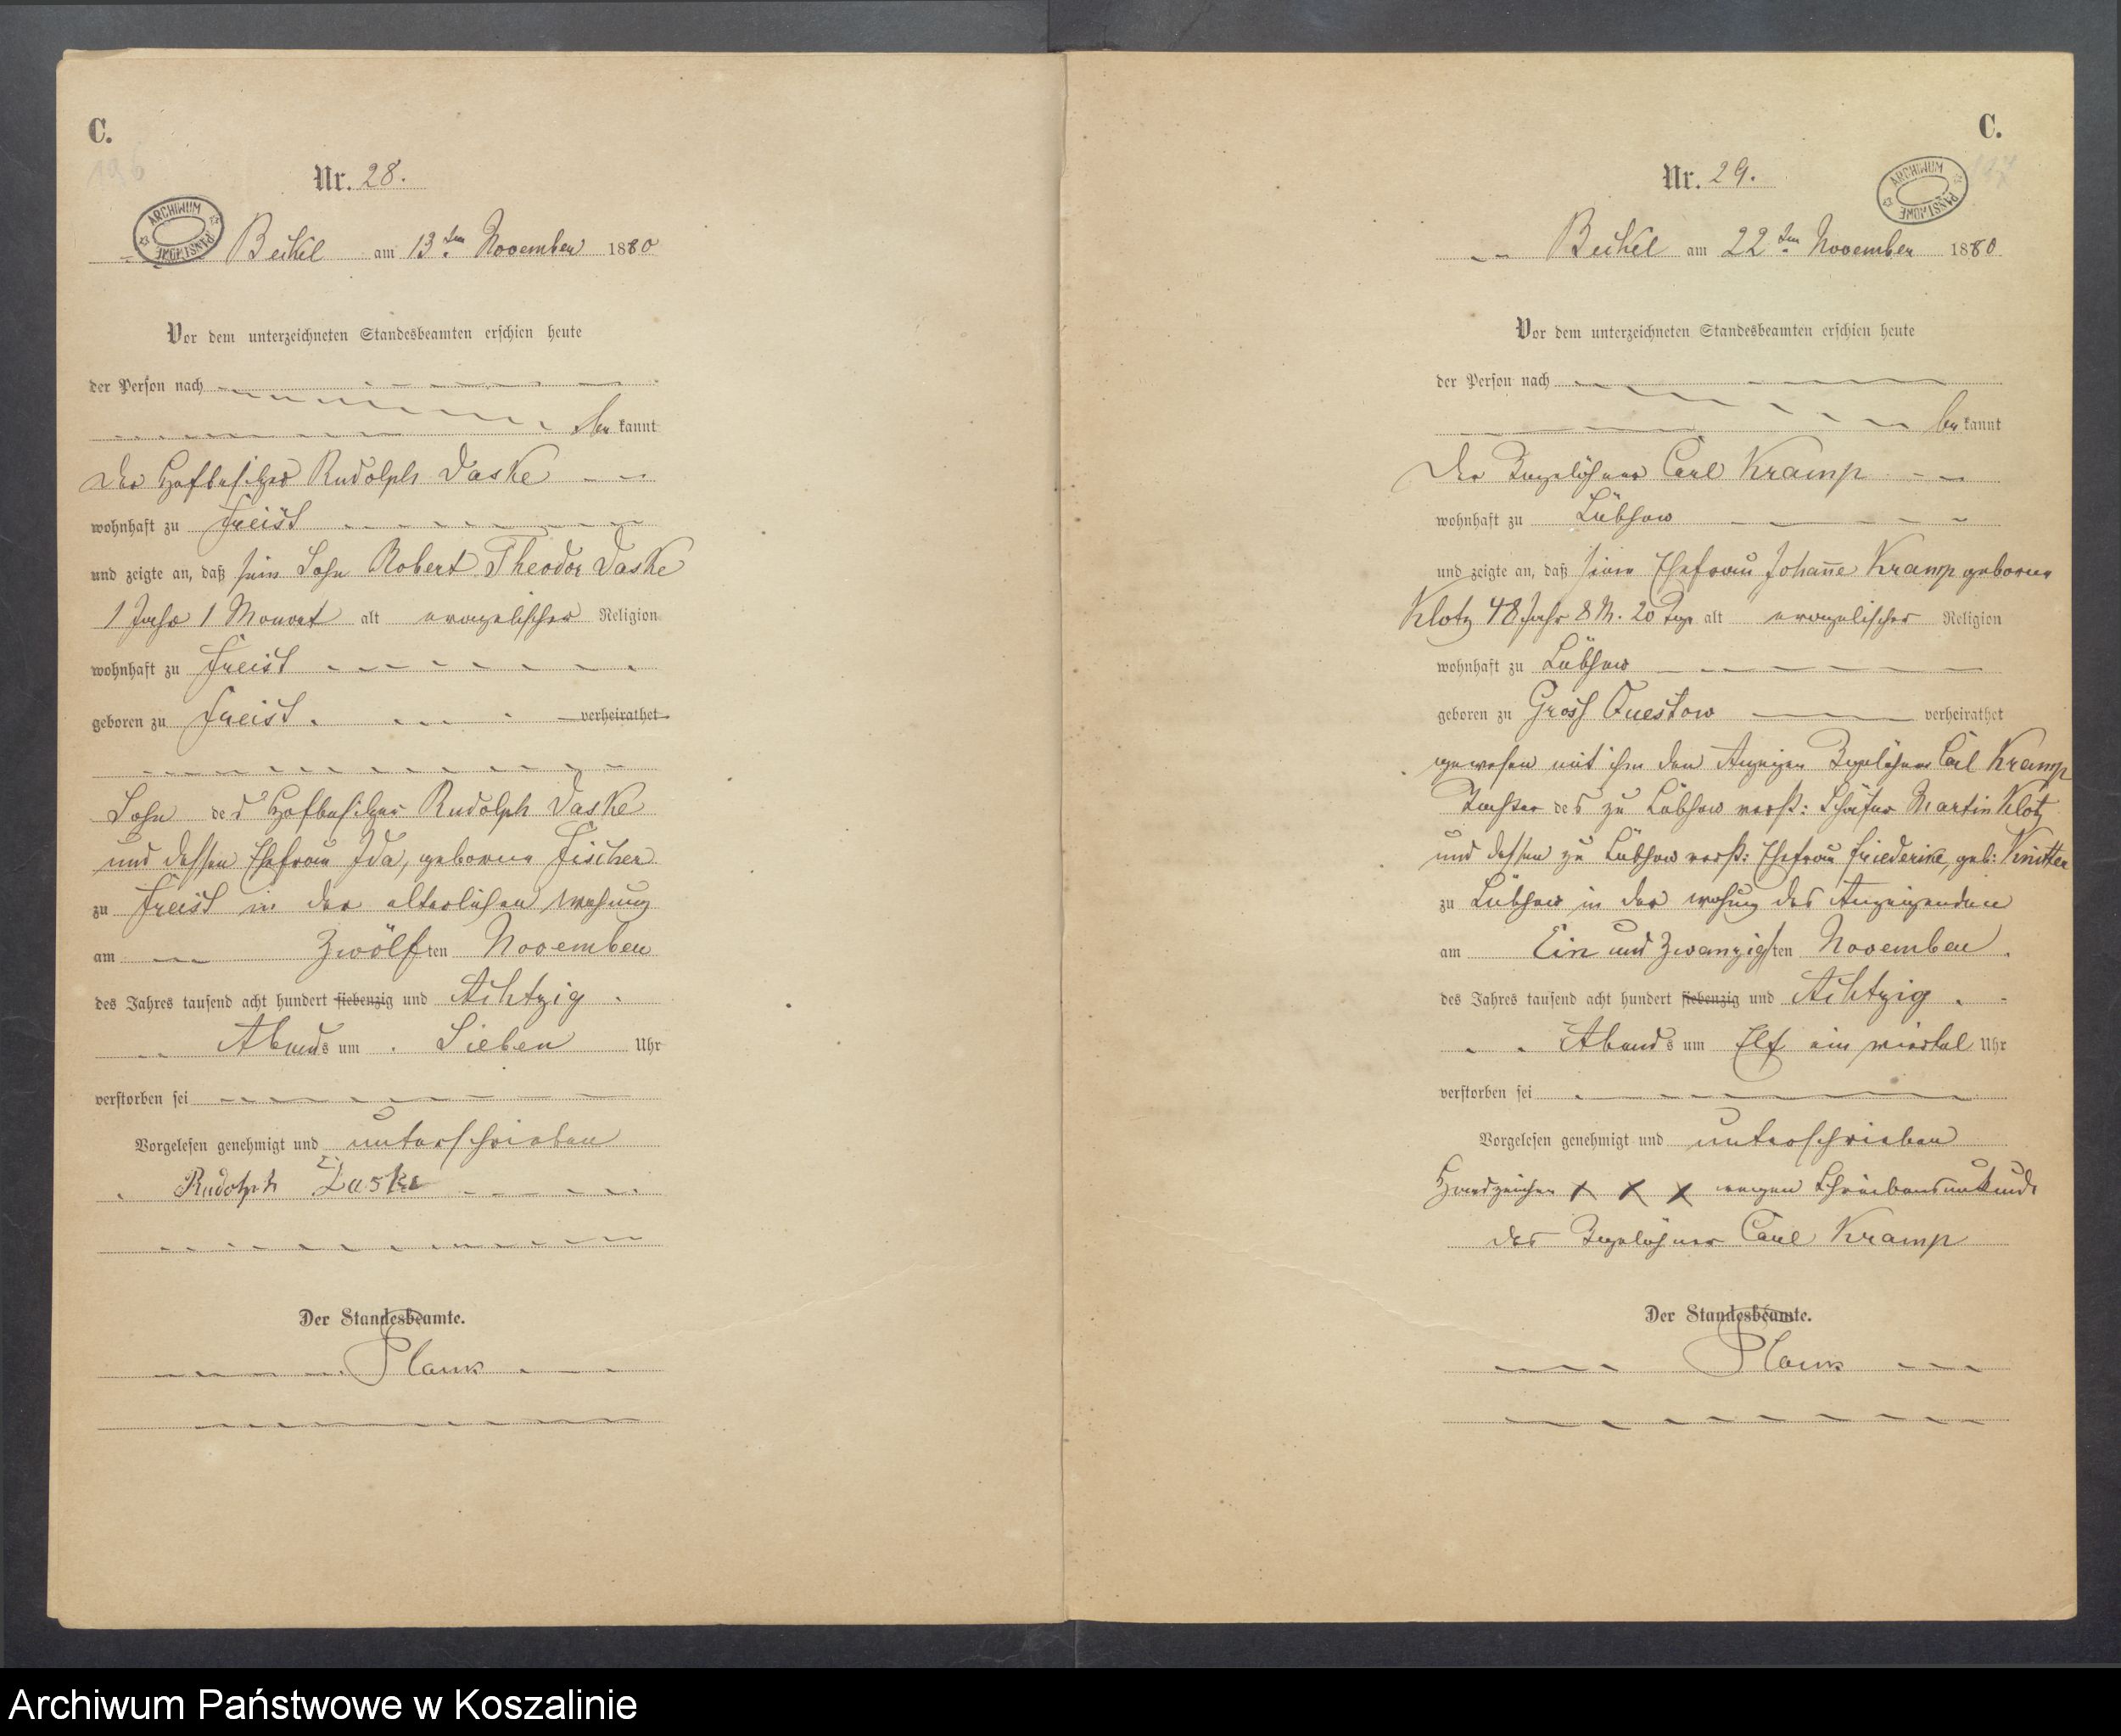 C.
196
Nr. 28.
ARCHIWUM PAŃSTWOWE
Beckel am 13ten November 1880
Vor dem unterzeichneten Standesbeamten erschien heute
der Person nach
be kannt
Der Hofbesitzer Rudolph Daske
wohnhaft zu Freist
und zeigte an, daß sein Sohn Robert Theodor Daske
1 Jahr 1 Monat alt evangelischer Religion
wohnhaft zu Freist
geboren zu Freist. verheirathet
Sohn des Hofbesitzer Rudolph Daske
und dessen Ehefrau Ida, geborene Fischer
zu Freist in der elterlichen Wohnung
am Zwölften November
des Jahres tausend acht hundert siebenzig und Achtzig.
Abends um Sieben Uhr
verstorben sei
Vorgelesen genehmigt und unterschrieben
Rudolph Daske
Der Standesbeamte.
C.
197
Nr. 29.
ARCHIWUM PAŃSTWOWE
Beckel am 22ten November 1880
Vor dem unterzeichneten Standesbeamten erschien heute
der Person nach
be kannt
Der Tagelöhner Carl Kramp
wohnhaft zu Lübzow
und zeigte an, daß seine Ehefrau Johan̄e Kramp geborene
Klotz 48 Jahr 8 M. 20 Tage alt evangelischer Religion
wohnhaft zu Lübzow
geboren zu Gross Questow verheirathet
gewesen mit ihm den Tagelöhner Carl Kramp
Tochter des zu Lübzow verst: Schäfer Martin Klotz
und dessen zu Lübzow verst: Ehefrau Friederike, geb: Knitter
zu Lübzow in der Wohung des Anzeigenden
am Ein und Zwanzigsten November.
des Jahres tausend acht hundert siebenzig und Achtzig.
Abends um Elf ein viertel Uhr
verstorben sei
Vorgelesen genehmigt und unterschrieben
Handzeichen x x x wegen Schreibensunkunde
des Tagelöhner Carl Kramp
Der Standesbeamte.
Archiwum Państwowe w Koszalinie